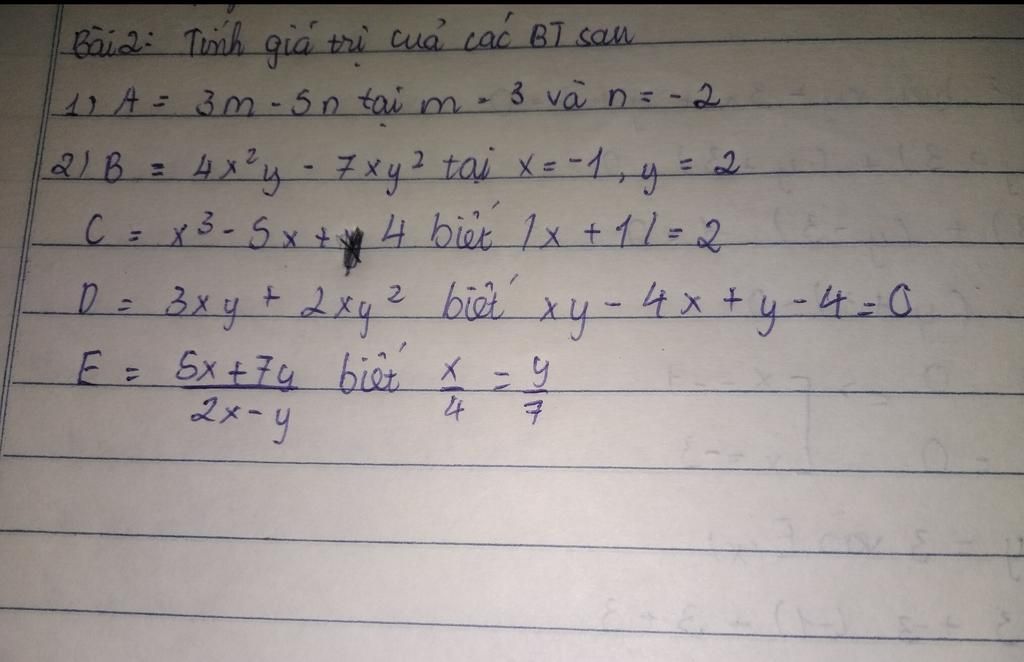 Bài 2: Tính giá trị cuả các BT sau
1) A = 3m - 5n tại m - 3 và n = - 2
2) B = 4x²y - 7xy² tại x = -1, y = 2
C = x³ - 5x + 4 biết |x + 1| = 2
D = 3xy + 2xy² biết xy - 4x + y - 4 = 0
E = \frac{5x+7y}{2x-y} biết \frac{x}{4} = \frac{y}{7}